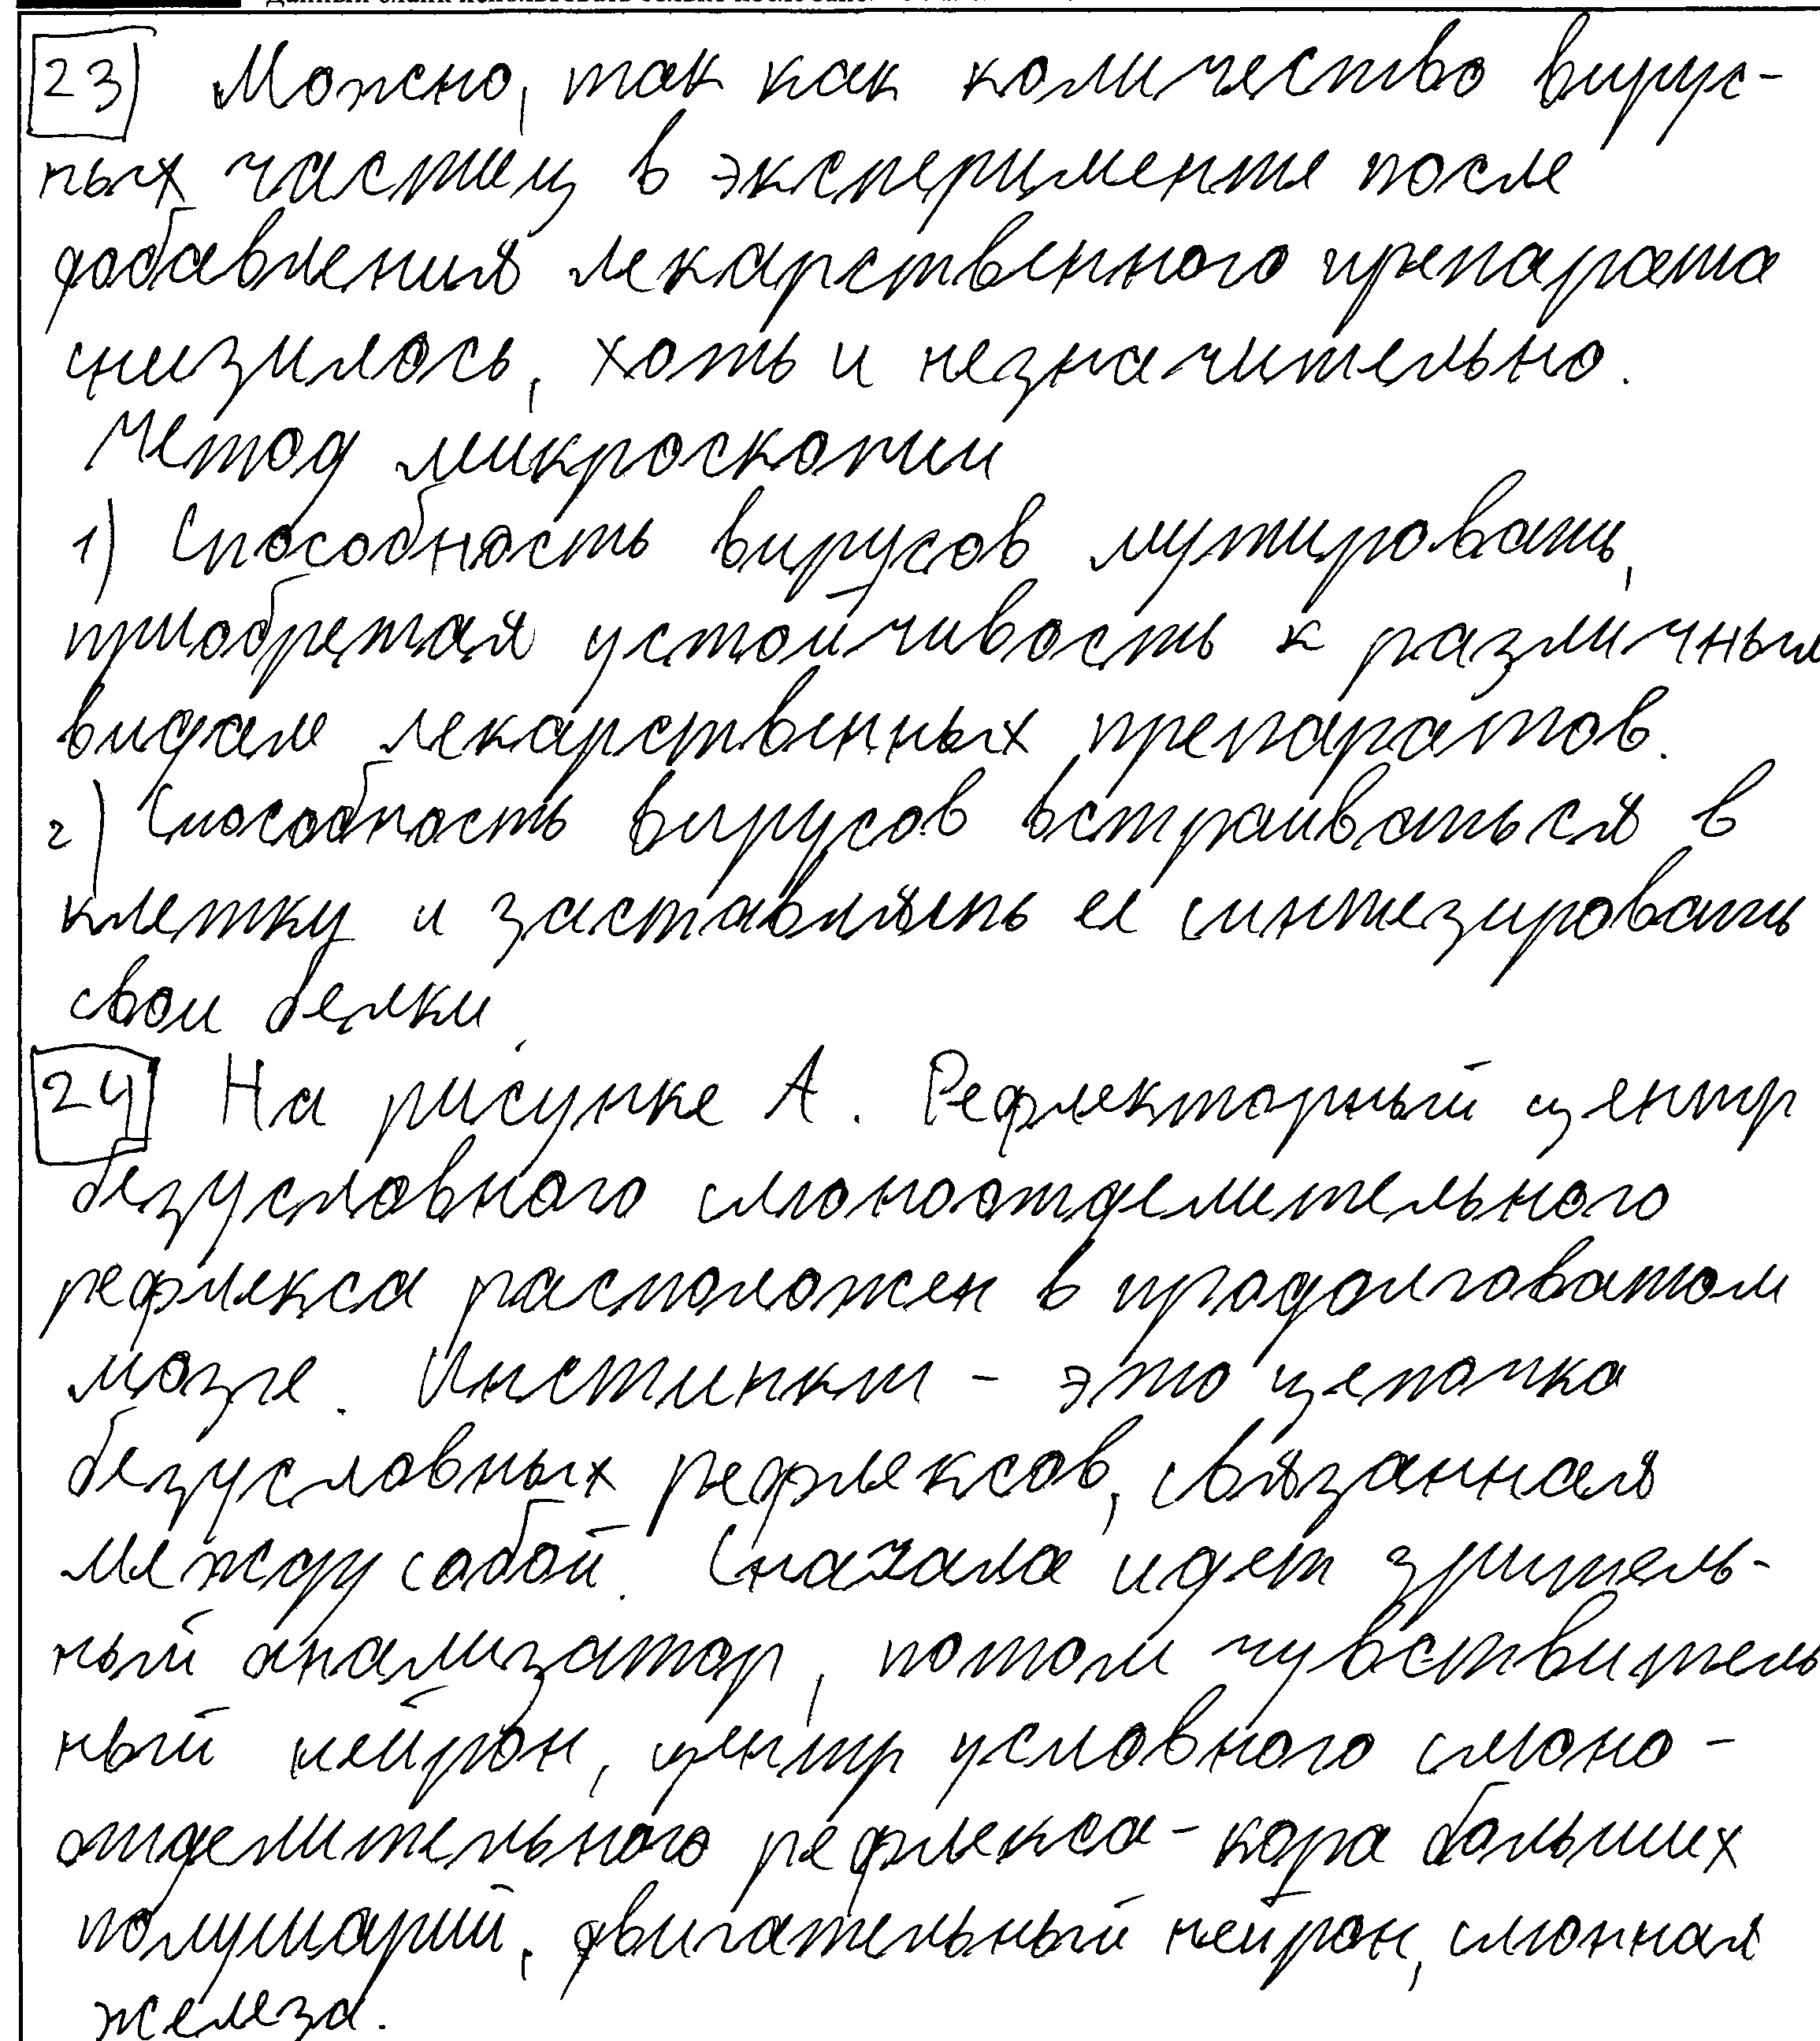 23) Можно, так как количество вирус-
ных частиц в эксперименте после
добавления лекарственного препарата
снизилось, хоть и незначительно.
Метод микроскопии
1) Способность вирусов мутировать,
приобретая устойчивость к различным
видам лекарственных препаратов.
2) Способность вирусов встраиваться в
клетку и заставлять ее синтезировать
свои белки.
24 На рисунке А. Рефлекторный центр
безусловного слюноотделительного
рефлекса расположен в продолговатом
мозге. Инстинкт - это цепочка
безусловных рефлексов, связанная
между собой. Сначала идет зритель-
ный анализатор, потом чувствитель
ный нейрон, центр условного слюно-
отделительного рефлекса - кора больших
полушарий, двигательный нейрон, слюнная
железа.